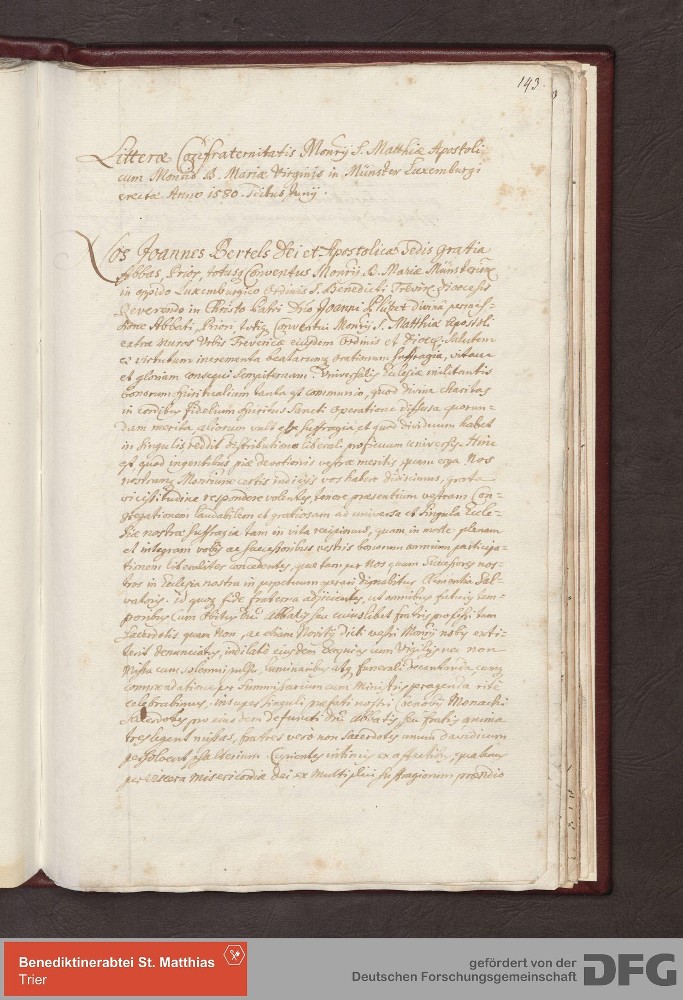 143
Litteræ Confraternitatis Monrij S. Matthiæ Apostoli
cum Monrio B. Mariæ Virginis in Münster Luxemburgi
erectæ Anno 1580. Idibus Junij.
Nos Joannes Bertels Dei et Apostolicæ Sedis gratia
Abbas, Prior, totusq Conventus Monrij B. Mariæ Münsteriæ
in oppido Luxemburgico Ordinis S. Benedicti Trevir. Diœcesis
Reverendo in Christo Patri Dno Joanni divina permis-
sione Abbati, Priori, totiq Conventui Monrij S. Matthiæ Apostoli
extra muros Urbis Trevericæ eiusdem Ordinis et Diœc. Salutem
et virtutum incrementa beatarumq orationum suffragia, vitam
et gloriam consequi sempiternam. Universalis Ecclesiæ militantis
bonorum spiritualium tanta est communio, quod divina charitas
in cordibus fidelium Spiritus Sancti operatione diffusa quorun-
dam merita, aliorum vult esse suffragia et quod dividuum habet
in singulis, reddit distributione liberali proficuum universis. Hinc
est quod ingentibus piæ devotionis vestræ meritis, quam erga Nos
nostrumq Monrium certis indicijs vos habere didicimus, grata
vicissitudine respondere volentes, tenore præsentium vestram Con-
gregationem laudabilem et gratiosam ad universa et singula Eccle-
siæ nostræ suffragia tam in vita recipimus, quam in morte plenam
et integram vobis ac successoribus vestris bonorum omnium participa-
tionem liberaliter concedentes, quæ tam per Nos quam Successores nos-
tros in Ecclesia nostra in perpetuum operari dignabitur clementia Sal-
vatoris. id quoq fide fraterna adjicientes, ut omnibus futuris tem-
poribus cum obitus Dni Abbatis seu cuiuslibet fratris professi tam
Sacerdotis quam non, ac etiam Novitij dicti vestri Monrij nobis exti-
terit denunciatus, indilate eiusdem Exequias cum Vigilijs nec non
Missa cum solemni pulsu, luminaribus atq funerali decantanda, cum
commendatione per Summissarium cum Ministris peragenda rite
celebrabimus, insuper singuli præfati nostri Cœnobij Monachi
Sacerdotes pro eiusdem defuncti Dni Abbatis, seu fratris anima
tres legent missas, fratres vero non Sacerdotes unum Davidicum
persolvent psalterium. Cupientes intimis ex affectibus, quatenus
per viscera misericordiæ Dei ex multiplici suffragiorum præsidio
Benediktinerabtei St. Matthias
Trier
gefördert von der
Deutschen Forschungsgemeinschaft
DFG